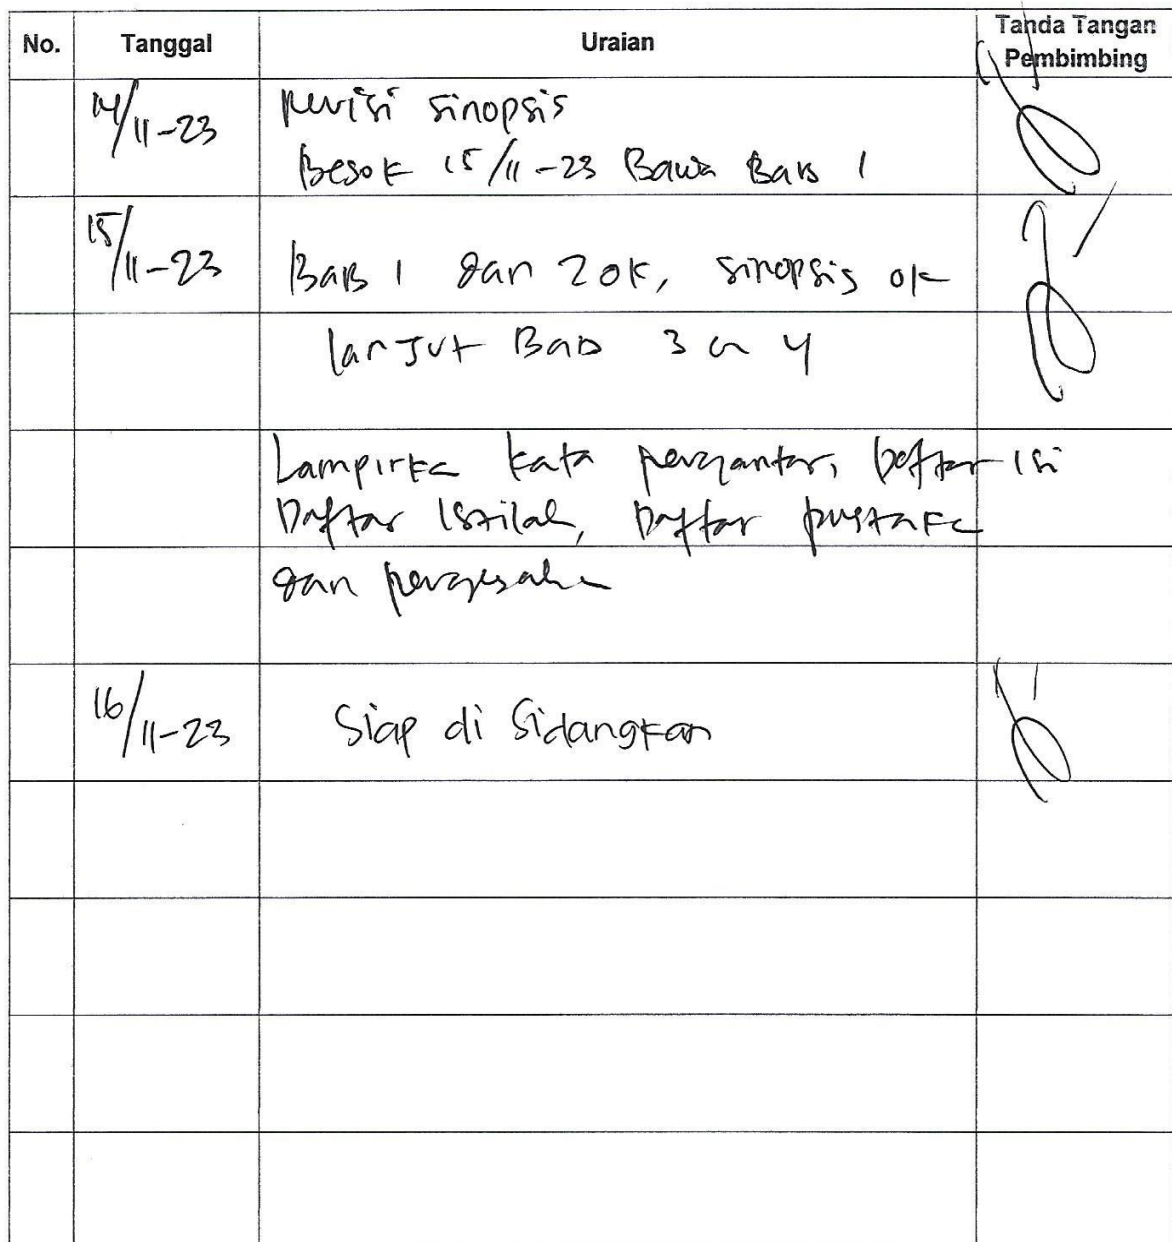 No. Tanggal Uraian Tanda Tangan
Pembimbing
14/11-23 Revisi sinopsis
Besok 15/11-23 Bawa Bab 1
15/11-23 Bab 1 dan 2 ok, sinopsis ok
lanjut Bab 3 4
Lampirka kata pengantar, Daftar isi
Daftar Istilah, Daftar pustaka
dan pengesaha
16/11-23 Siap di Sidangkan